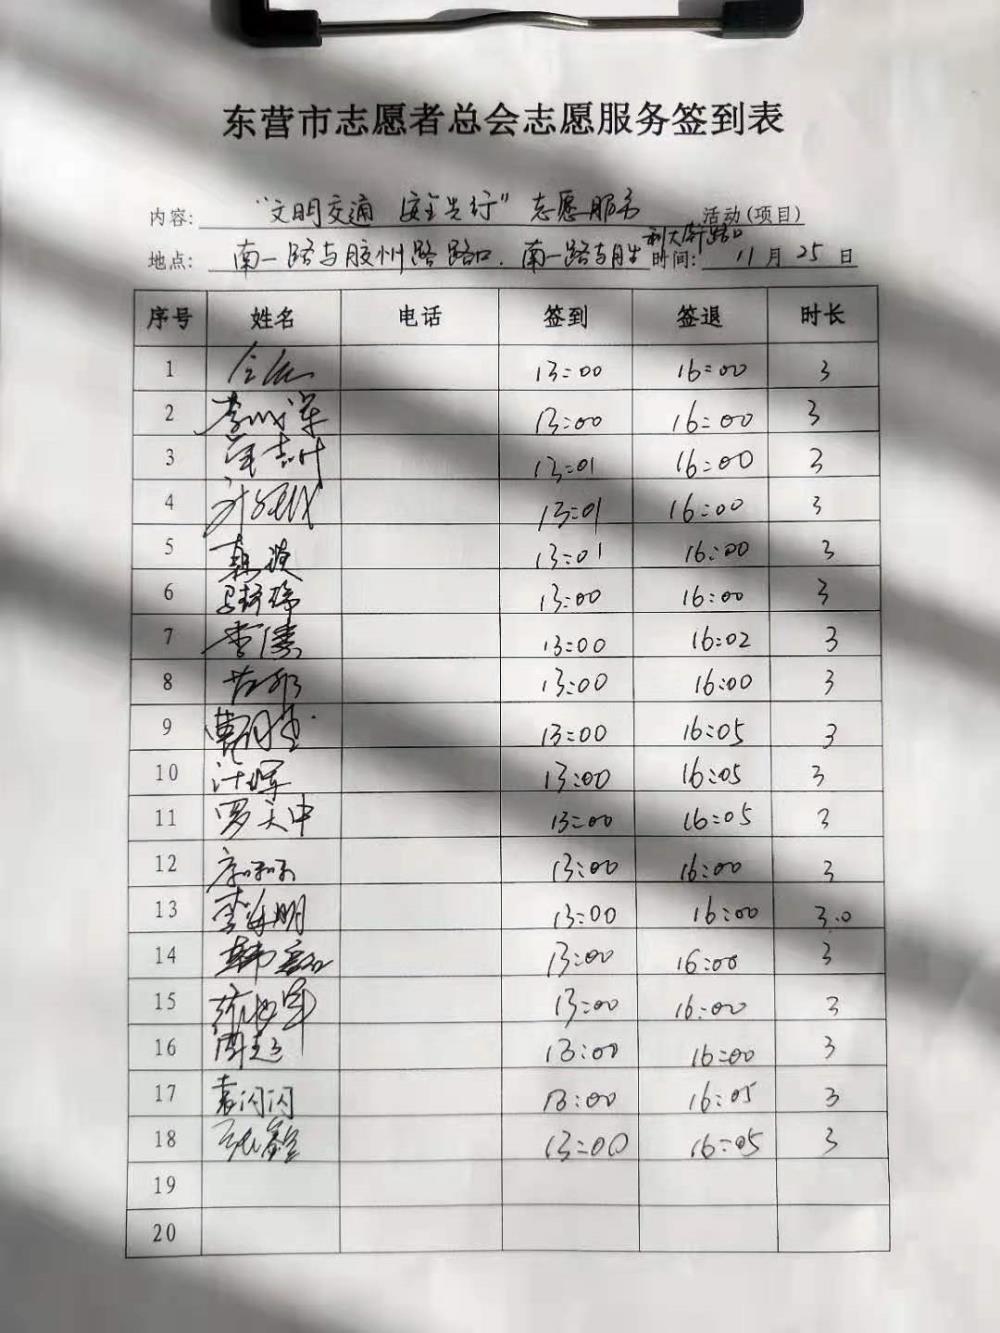 东营市志愿者总会志愿服务签到表
内容: “文明交通 安全先行” 志愿服务 活动(项目)
地点: 南一路与胶州路路口、南一路与胜利大街路口 时间: 11月25日
序号 姓名 电话 签到 签退 时长
1 13:00 16:00 3
2 13:00 16:00 3
3 13:01 16:00 3
4 13:01 16:00 3
5 13:01 16:00 3
6 13:00 16:00 3
7 李倩 13:00 16:02 3
8 13:00 16:00 3
9 13:00 16:05 3
10 13:00 16:05 3
11 罗天中 13:00 16:05 3
12 13:00 16:00 3
13 李海明 13:00 16:00 3.0
14 13:00 16:00 3
15 13:00 16:00 3
16 13:00 16:00 3
17 袁闪闪 13:00 16:05 3
18 13:00 16:05 3
19
20